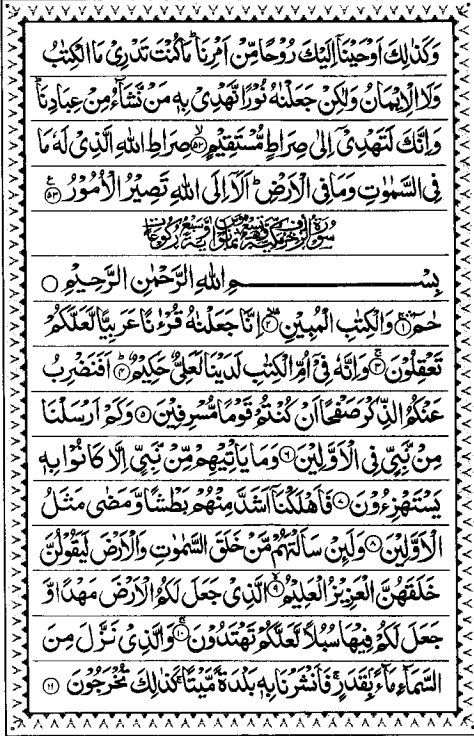 وَكَذٰلِكَ اَوْحَيْنَاۤ اِلَيْكَ رُوْحًا مِّنْ اَمْرِنَا ؕ مَا كُنْتَ تَدْرِيْ مَا الْكِتٰبُ
وَلَا الْاِيْمَانُ وَلٰكِنْ جَعَلْنٰهُ نُوْرًا نَّهْدِيْ بِهٖ مَنْ نَّشَآءُ مِنْ عِبَادِنَا ؕ
وَاِنَّكَ لَتَهْدِيْۤ اِلٰى صِرَاطٍ مُّسْتَقِيْمٍ ۙ﴿۵۲﴾ صِرَاطِ اللّٰهِ الَّذِيْ لَهٗ مَا
فِى السَّمٰوٰتِ وَمَا فِى الْاَرْضِ ؕ اَلَاۤ اِلَى اللّٰهِ تَصِيْرُ الْاُمُوْرُ ﴿۵۳﴾
بِسْمِ اللّٰهِ الرَّحْمٰنِ الرَّحِيْمِ
حٰمٓ ﴿۱﴾ وَالْكِتٰبِ الْمُبِيْنِ ﴿۲﴾ اِنَّا جَعَلْنٰهُ قُرْءٰنًا عَرَبِيًّا لَّعَلَّكُمْ
تَعْقِلُوْنَ ﴿۳﴾ وَاِنَّهٗ فِيْۤ اُمِّ الْكِتٰبِ لَدَيْنَا لَعَلِيٌّ حَكِيْمٌ ﴿۴﴾ اَفَنَضْرِبُ
عَنْكُمُ الذِّكْرَ صَفْحًا اَنْ كُنْتُمْ قَوْمًا مُّسْرِفِيْنَ ﴿۵﴾ وَكَمْ اَرْسَلْنَا
مِنْ نَّبِيٍّ فِى الْاَوَّلِيْنَ ﴿۶﴾ وَمَا يَاْتِيْهِمْ مِّنْ نَّبِيٍّ اِلَّا كَانُوْا بِهٖ
يَسْتَهْزِءُوْنَ ﴿۷﴾ فَاَهْلَكْنَاۤ اَشَدَّ مِنْهُمْ بَطْشًا وَّمَضٰى مَثَلُ
الْاَوَّلِيْنَ ﴿۸﴾ وَلَئِنْ سَاَلْتَهُمْ مَّنْ خَلَقَ السَّمٰوٰتِ وَالْاَرْضَ لَيَقُوْلُنَّ
خَلَقَهُنَّ الْعَزِيْزُ الْعَلِيْمُ ﴿۹﴾ الَّذِيْ جَعَلَ لَكُمُ الْاَرْضَ مَهْدًا وَّ
جَعَلَ لَكُمْ فِيْهَا سُبُلًا لَّعَلَّكُمْ تَهْتَدُوْنَ ﴿۱۰﴾ وَالَّذِيْ نَزَّلَ مِنَ
السَّمَآءِ مَآءًۢ بِقَدَرٍ ۚ فَاَنْشَرْنَا بِهٖ بَلْدَةً مَّيْتًا ۚ كَذٰلِكَ تُخْرَجُوْنَ ﴿۱۱﴾